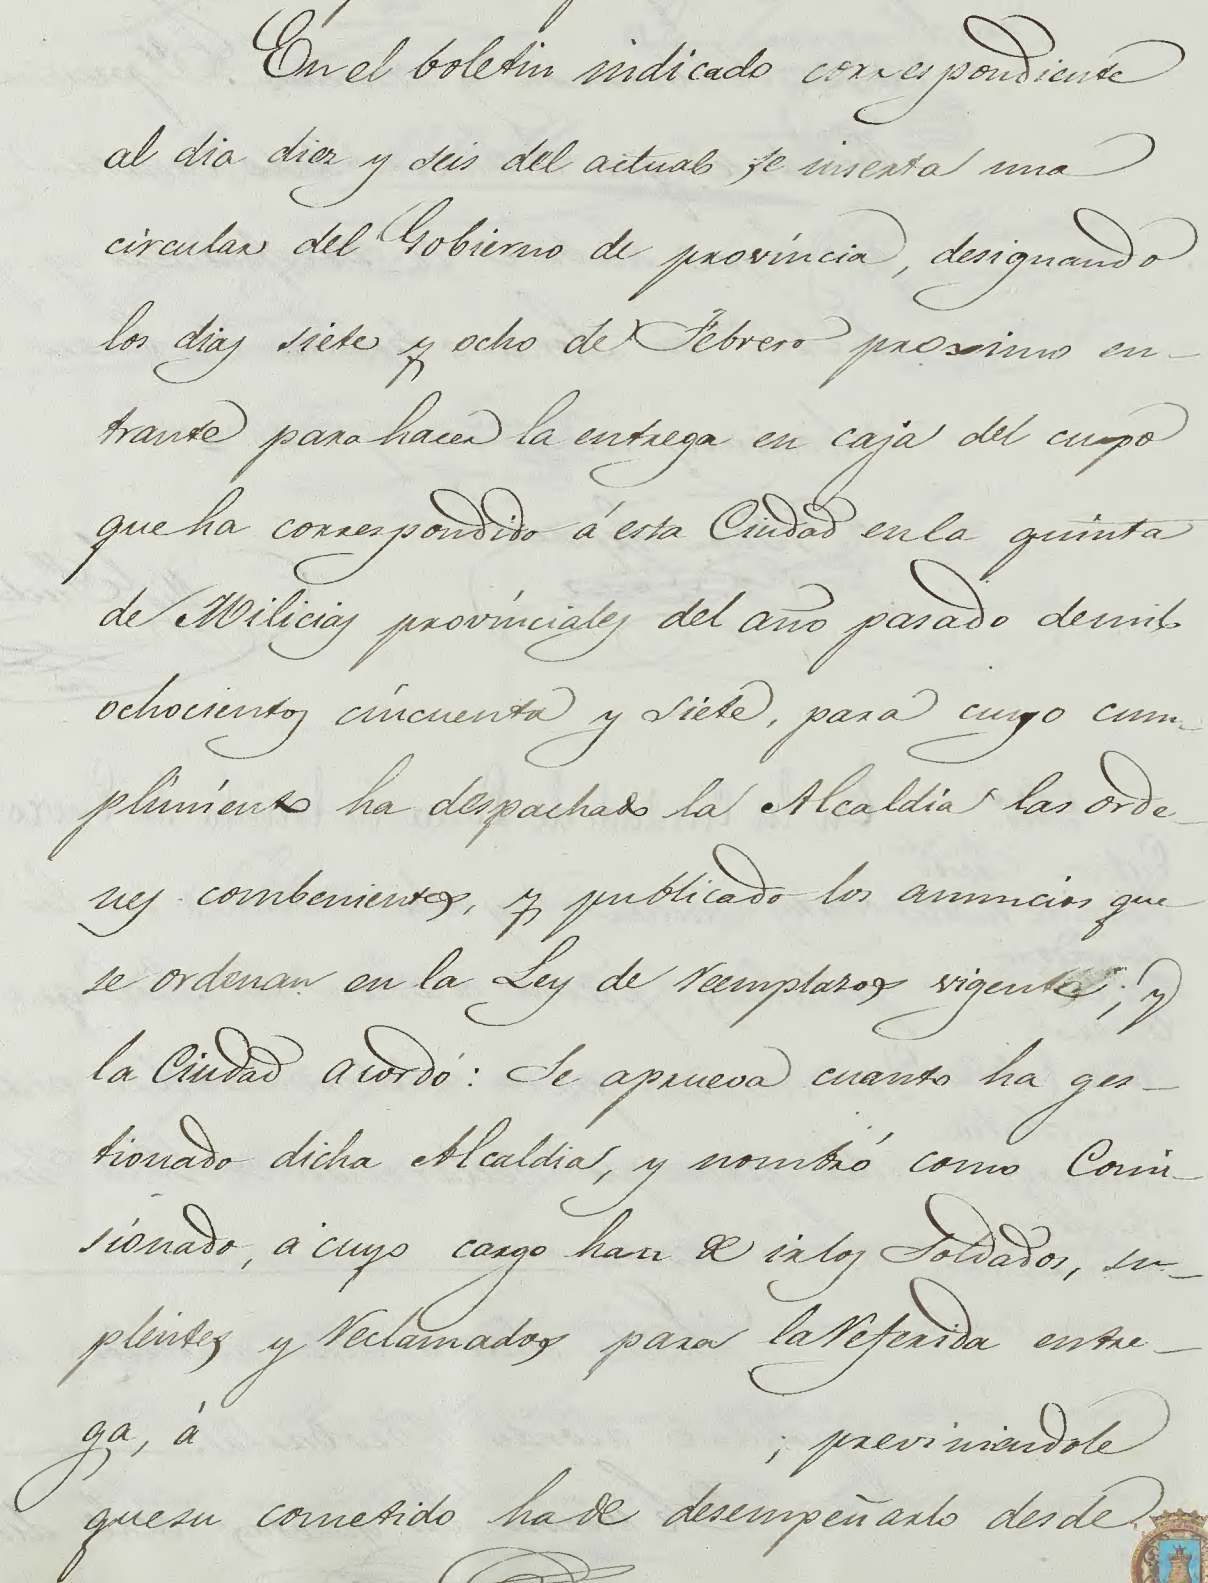 En el boletin indicado correspondiente
al dia diez y seis del actual se inserta una
circular del Gobierno de provincia, designando
los dias siete y ocho de Febrero proximo en-
trante para hacer la entrega en caja del cupo
que ha correspondido á esta Ciudad en la quinta
de Milicias provinciales del año pasado de mil
ochocientos cincuenta y siete, para cuyo cum-
plimiento ha despachado la Alcaldia las orde-
nes combenientes, y publicado los anuncios que
se ordenan en la Ley de reemplazos vigente; y
la Ciudad acordó: Se aprueva cuanto ha ges-
tionado dicha Alcaldia, y nombró como Comi-
sionado, á cuyo cargo han de ir los Soldados, su-
plentes y reclamados para la referida entre-
ga, á ; previniendole
que su cometido ha de desempeñarlo desde